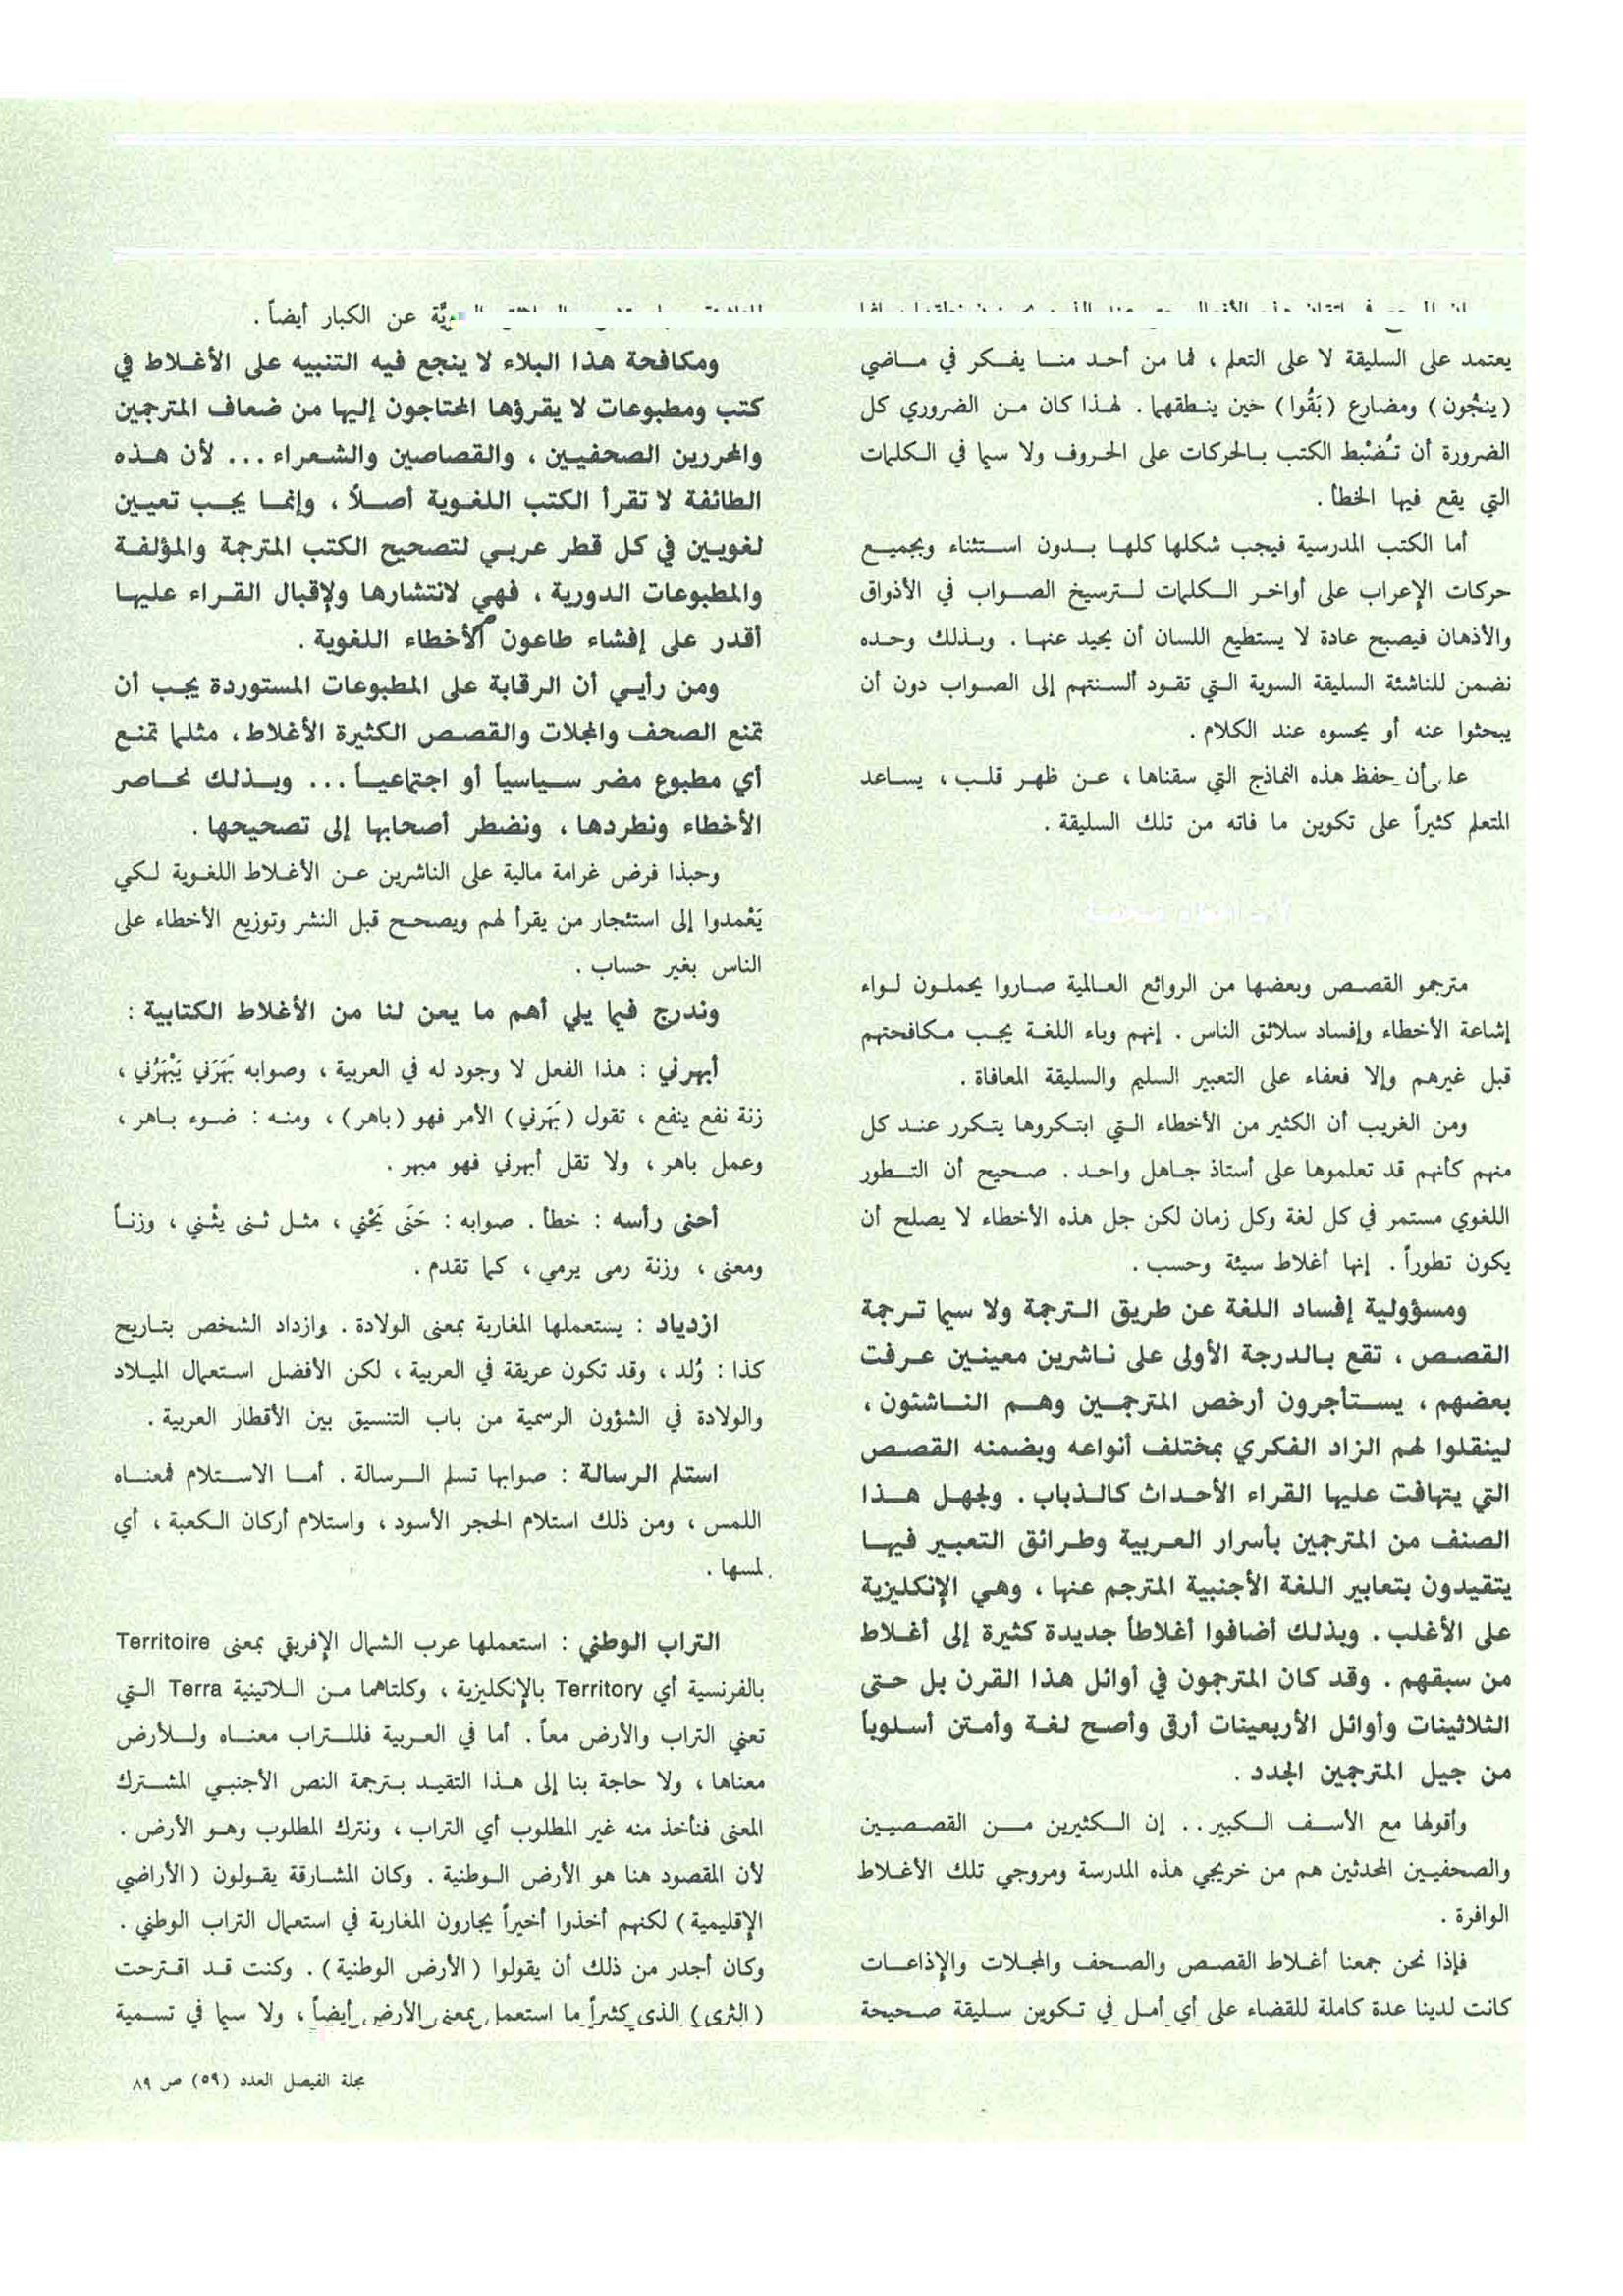 يعتمد على السليقة لا على التعلم ، فما من أحد منا يفكر في ماضي
(ينجُون) ومضارع (بَقُوا) حين ينطقهما . لهذا كان من الضروري كل
الضرورة أن تُضْبط الكتب بالحركات على الحروف ولا سيما في الكلمات
التي يقع فيها الخطأ .
أما الكتب المدرسية فيجب شكلها كلها بدون استثناء وبجميع
حركات الإعراب على أواخر الكلمات لترسيخ الصواب في الأذواق
والأذهان فيصبح عادة لا يستطيع اللسان أن يحيد عنها . وبذلك وحده
نضمن للناشئة السليقة السوية التي تقود ألسنتهم إلى الصواب دون أن
يبحثوا عنه أو يحسوه عند الكلام .
على أن حفظ هذه النماذج التي سقناها ، عن ظهر قلب ، يساعد
المتعلم كثيراً على تكوين ما فاته من تلك السليقة .
مترجمو القصص وبعضها من الروائع العالمية صاروا يحملون لواء
إشاعة الأخطاء وإفساد سلائق الناس . إنهم وباء اللغة يجب مكافحتهم
قبل غيرهم وإلا فعفاء على التعبير السليم والسليقة المعافاة .
ومن الغريب أن الكثير من الأخطاء التي ابتكروها يتكرر عند كل
منهم كأنهم قد تعلموها على أستاذ جاهل واحد . صحيح أن التطور
اللغوي مستمر في كل لغة وكل زمان لكن جل هذه الأخطاء لا يصلح أن
يكون تطوراً . إنها أغلاط سيئة وحسب .
ومسؤولية إفساد اللغة عن طريق الترجمة ولا سيما ترجمة
القصص ، تقع بالدرجة الأولى على ناشرين معينين عرفت
بعضهم ، يستأجرون أرخص المترجمين وهم الناشئون ،
لينقلوا لهم الزاد الفكري بمختلف أنواعه وبضمنه القصص
التي يتهافت عليها القراء الأحداث كالذباب . ولجهل هذا
الصنف من المترجمين بأسرار العربية وطرائق التعبير فيها
يتقيدون بتعابير اللغة الأجنبية المترجم عنها ، وهي الإنكليزية
على الأغلب . وبذلك أضافوا أغلاطاً جديدة كثيرة إلى أغلاط
من سبقهم . وقد كان المترجمون في أوائل هذا القرن بل حتى
الثلاثينات وأوائل الأربعينات أرقى وأصح لغة وأمتن أسلوباً
من جيل المترجمين الجدد .
وأقولها مع الأسف الكبير .. إن الكثيرين من القصصيين
والصحفيين المحدثين هم من خريجي هذه المدرسة ومروجي تلك الأغلاط
الوافرة .
فإذا نحن جمعنا أغلاط القصص والصحف والمجلات والإذاعات
كانت لدينا عدة كاملة للقضاء على أي أمل في تكوين سليقة صحيحة
عن الكبار أيضاً .
ومكافحة هذا البلاء لا ينجع فيه التنبيه على الأغلاط في
كتب ومطبوعات لا يقرؤها المحتاجون إليها من ضعاف المترجمين
والمحررين الصحفيين ، والقصاصين والشعراء ... لأن هذه
الطائفة لا تقرأ الكتب اللغوية أصلاً ، وإنما يجب تعيين
لغويين في كل قطر عربي لتصحيح الكتب المترجمة والمؤلفة
والمطبوعات الدورية ، فهي لانتشارها ولإقبال القراء عليها
أقدر على إفشاء طاعون الأخطاء اللغوية .
ومن رأيي أن الرقابة على المطبوعات المستوردة يجب أن
تمنع الصحف والمجلات والقصص الكثيرة الأغلاط ، مثلما تمنع
أي مطبوع مضر سياسياً أو اجتماعياً ... وبذلك نحاصر
الأخطاء ونطردها ، ونضطر أصحابها إلى تصحيحها .
وحبذا فرض غرامة مالية على الناشرين عن الأغلاط اللغوية لكي
يَعْمدوا إلى استئجار من يقرأ لهم ويصحح قبل النشر وتوزيع الأخطاء على
الناس بغير حساب .
وندرج فيما يلي أهم ما يعن لنا من الأغلاط الكتابية :
أبهرني : هذا الفعل لا وجود له في العربية ، وصوابه بَهَرَني يَبْهَرُني ،
زنة نفع ينفع ، تقول (بَهَرني) الأمر فهو (باهر) ، ومنه : ضوء باهر ،
وعمل باهر ، ولا تقل أبهرني فهو مبهر .
أحنى رأسه : خطأ . صوابه : حَنَى يَحْني ، مثل ثنى يثْني ، وزناً
ومعنى ، وزنة رمى يرمي ، كما تقدم .
ازدياد : يستعملها المغاربة بمعنى الولادة . وازداد الشخص بتاريخ
كذا : وُلد ، وقد تكون عريقة في العربية ، لكن الأفضل استعمال الميلاد
والولادة في الشؤون الرسمية من باب التنسيق بين الأقطار العربية .
استلم الرسالة : صوابها تسلم الرسالة . أما الاستلام فمعناه
اللمس ، ومن ذلك استلام الحجر الأسود ، واستلام أركان الكعبة ، أي
لمسها .
التراب الوطني : استعملها عرب الشمال الإفريقي بمعنى Territoire
بالفرنسية أي Territory بالإنكليزية ، وكلتاهما من اللاتينية Terra التي
تعني التراب والأرض معاً . أما في العربية فللتراب معناه وللأرض
معناها ، ولا حاجة بنا إلى هذا التقيد بترجمة النص الأجنبي المشترك
المعنى فنأخذ منه غير المطلوب أي التراب ، ونترك المطلوب وهو الأرض .
لأن المقصود هنا هو الأرض الوطنية . وكان المشارقة يقولون (الأراضي
الإقليمية) لكنهم أخذوا أخيراً يجارون المغاربة في استعمال التراب الوطني .
وكان أجدر من ذلك أن يقولوا (الأرض الوطنية) . وكنت قد اقترحت
(الثرى) الذي كثيراً ما استعمل بمعنى الأرض أيضاً ، ولا سيما في تسمية
مجلة الفيصل العدد (٥٩) ص ٨٩